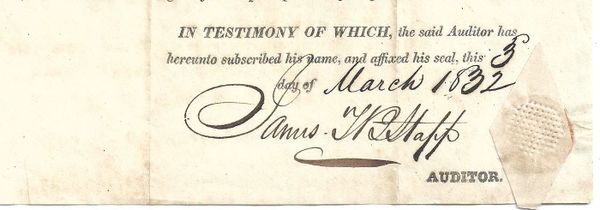 IN TESTIMONY OF WHICH, the said Auditor has
hereunto subscribed his name, and affixed his seal, this 3
day of March 1832
James T B Stapp
AUDITOR.